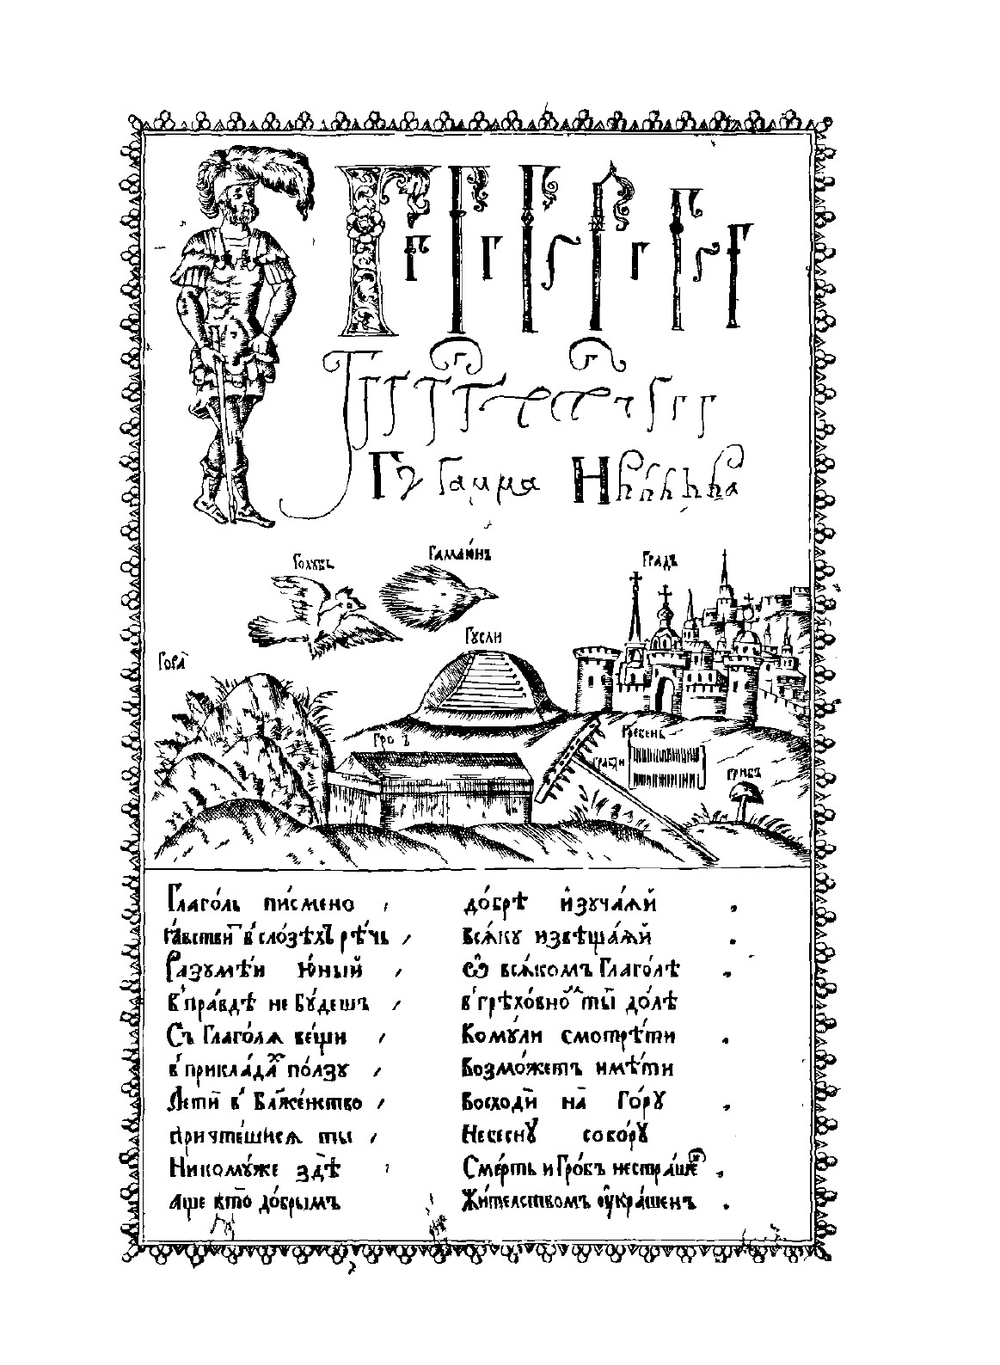 Г Г Г Г Г Г Г Г Г Г
Гу Гамма Н
Голубь
Гамаю́нъ
Градъ
Гора̀
Гусли
Гребень
Грабли
Грибъ
Глаго́ль пи́смено , до́брѣ и҆зуча́ѧй .
Ꙗ҆вствен въ сло́зѣхъ рѣ́чь , всѧ́ку извѣща́ѧй .
Разумѣ́й ю҆́ный , ѡ҆ всѧ́комъ Глаго́лѣ .
в пра́вдѣ не бу́дешъ , в грѣхо́вно ты̀ до́лѣ
Съ Глаго́лѧ ве́щи , Кому́ли смотрѣ́ти .
в приклада́х по́лзу , Возмо́жетъ имѣ́ти
Лети̑ в Блаже́нство , Восходѝ на̀ Го́ру .
причте́шисѧ ты , Небесну собо́ру
Никому́же здѣ̀ , Сме́рть и Гро́бъ не стра́ше .
аще кто̀ до́брымъ Жи́телством оу҆кра́шенъ .